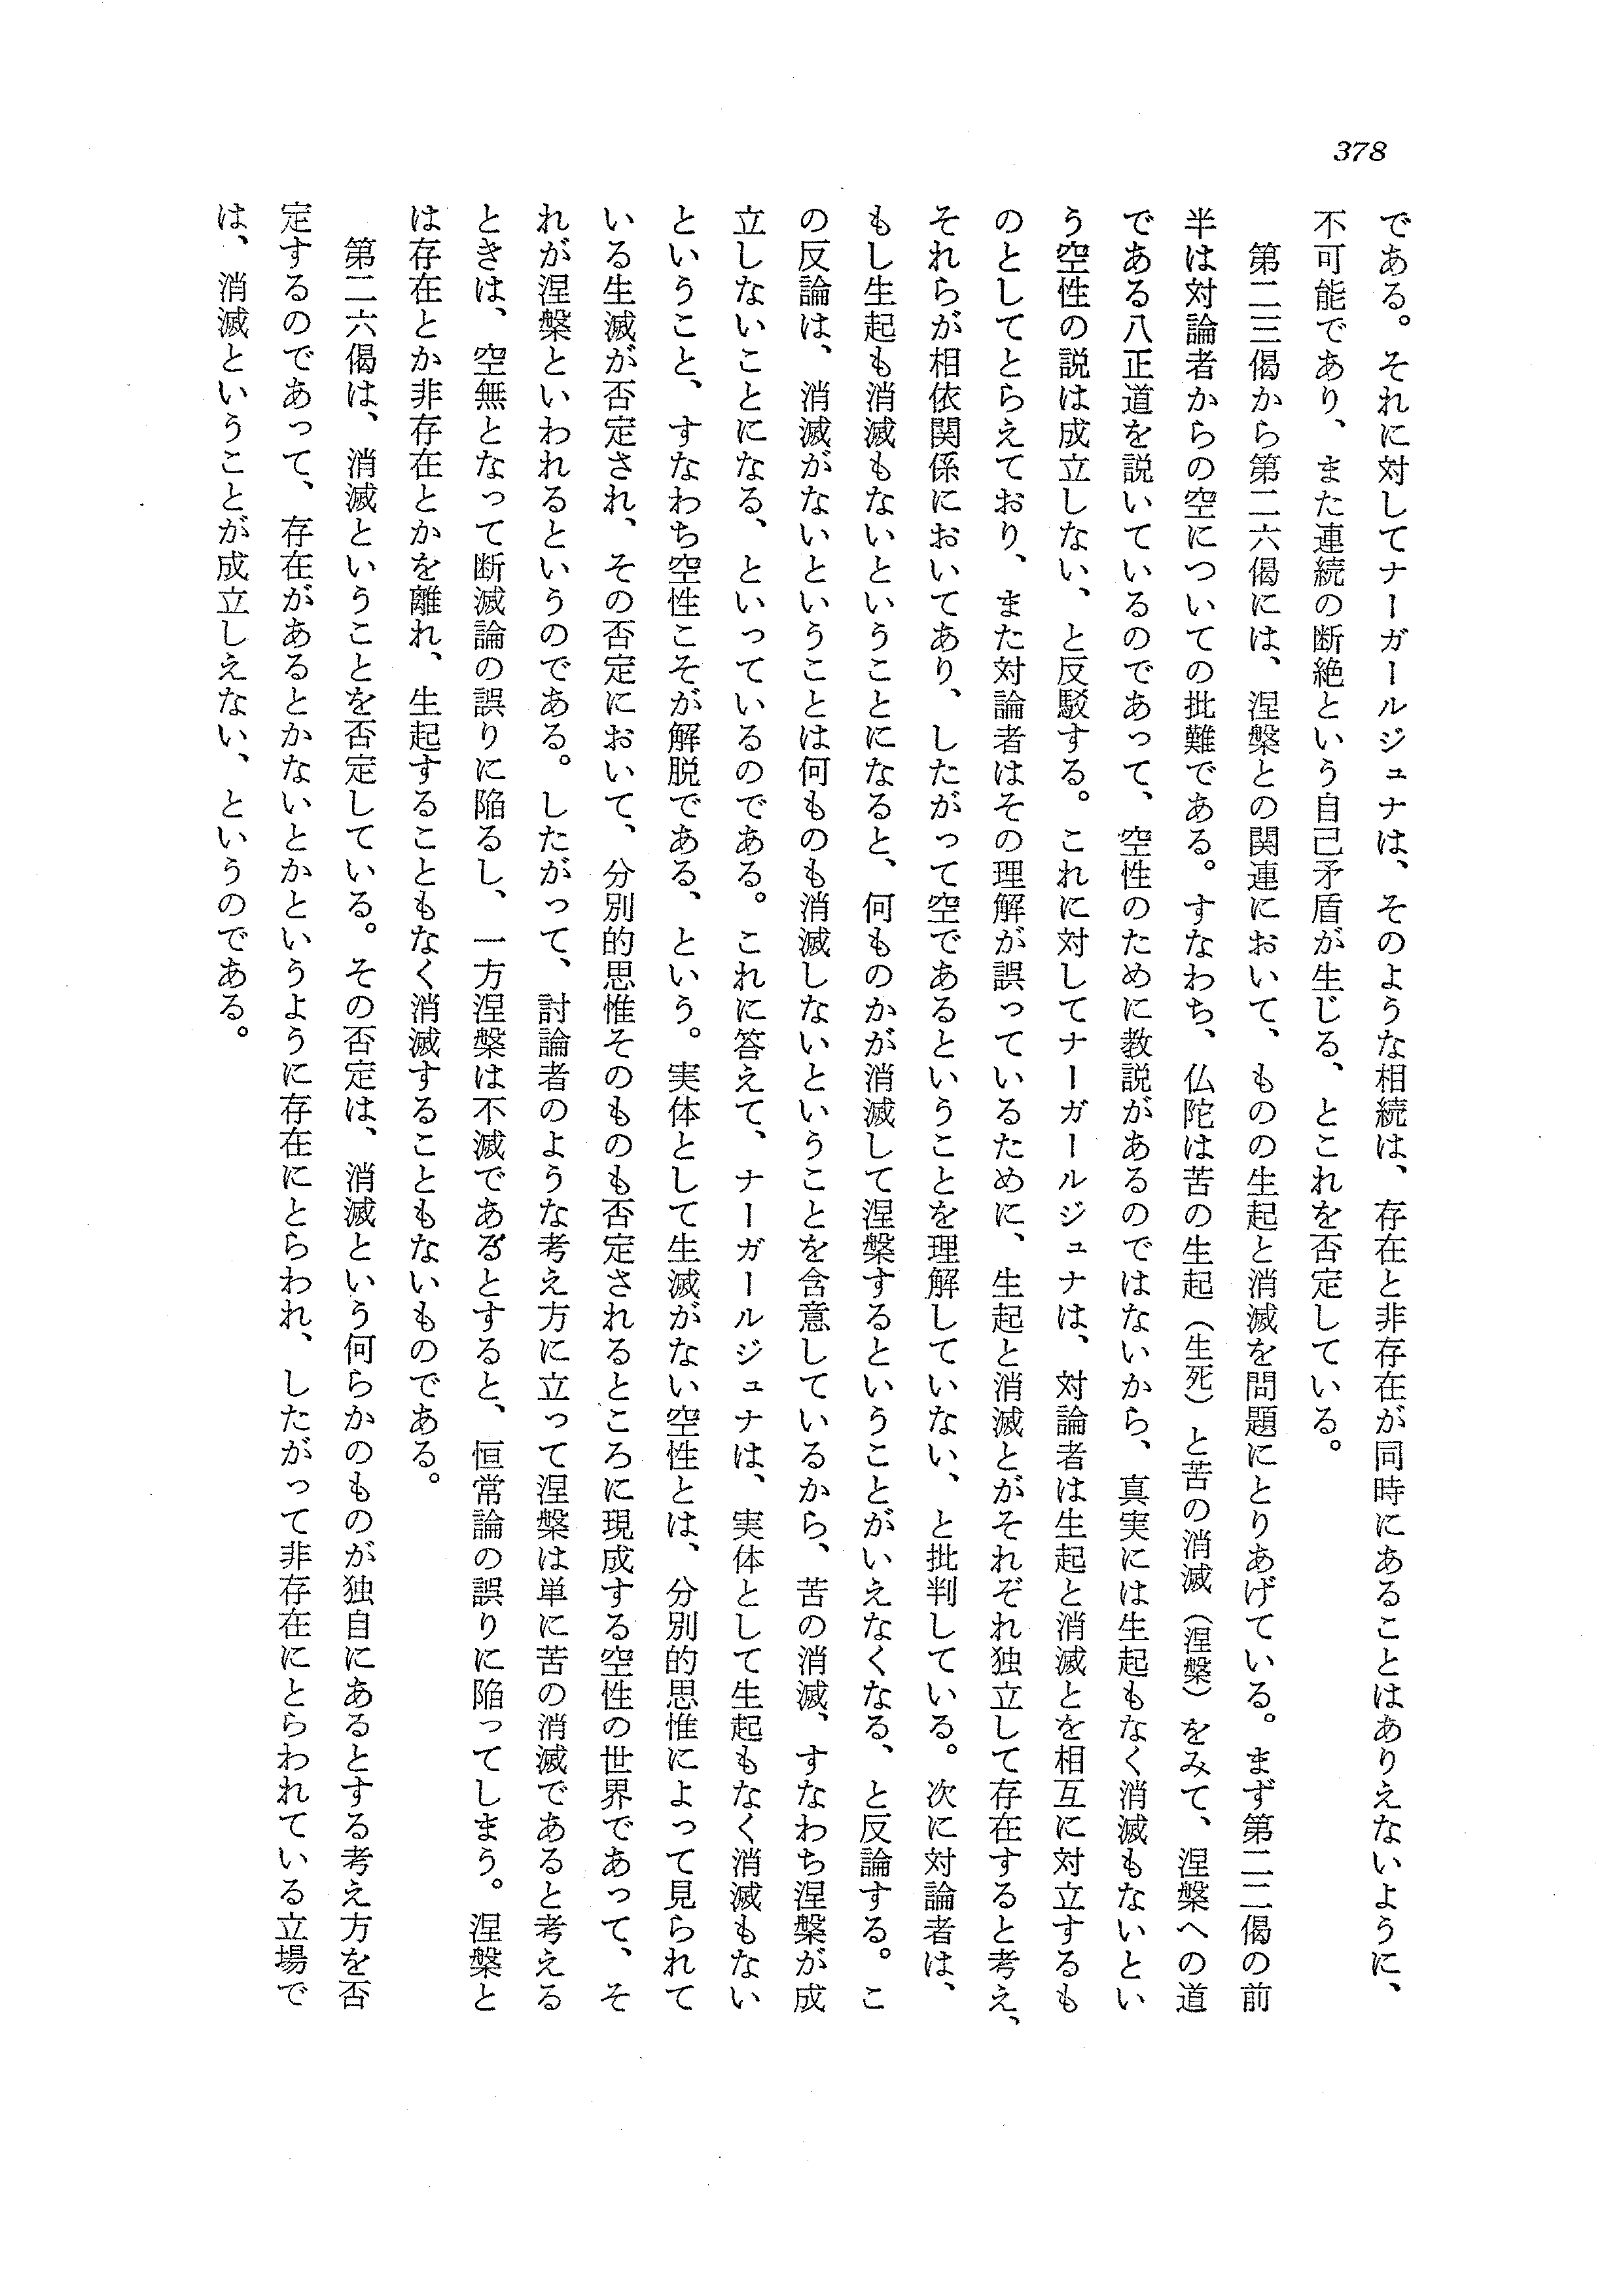 378
である。それに対してナーガールジュナは、そのような相続は、存在と非存在が同時にあることはありえないように、
不可能であり、また連続の断絶という自己矛盾が生じる、とこれを否定している。
第二三偈から第二六偈には、涅槃との関連において、ものの生起と消滅を問題にとりあげている。まず第二二偈の前
半は対論者からの空についての批難である。すなわち、仏陀は苦の生起（生死）と苦の消滅（涅槃）をみて、涅槃への道
である八正道を説いているのであって、空性のために教説があるのではないから、真実には生起もなく消滅もないとい
う空性の説は成立しない、と反駁する。これに対してナーガールジュナは、対論者は生起と消滅とを相互に対立するも
のとしてとらえており、また対論者はその理解が誤っているために、生起と消滅とがそれぞれ独立して存在すると考え、
それらが相依関係においてあり、したがって空であるということを理解していない、と批判している。次に対論者は、
もし生起も消滅もないということになると、何ものかが消滅して涅槃するということがいえなくなる、と反論する。こ
の反論は、消滅がないということは何ものも消滅しないということを含意しているから、苦の消滅、すなわち涅槃が成
立しないことになる、といっているのである。これに答えて、ナーガールジュナは、実体として生起もなく消滅もない
ということ、すなわち空性こそが解脱である、という。実体として生滅がない空性とは、分別的思惟によって見られて
いる生滅が否定され、その否定において、分別的思惟そのものも否定されるところに現成する空性の世界であって、そ
れが涅槃といわれるというのである。したがって、討論者のような考え方に立って涅槃は単に苦の消滅であると考える
ときは、空無となって断滅論の誤りに陥るし、一方涅槃は不滅であるとすると、恒常論の誤りに陥ってしまう。涅槃と
は存在とか非存在とかを離れ、生起することもなく消滅することもないものである。
第二六偈は、消滅ということを否定している。その否定は、消滅という何らかのものが独自にあるとする考え方を否
定するのであって、存在があるとかないとかというように存在にとらわれ、したがって非存在にとらわれている立場で
は、消滅ということが成立しえない、というのである。